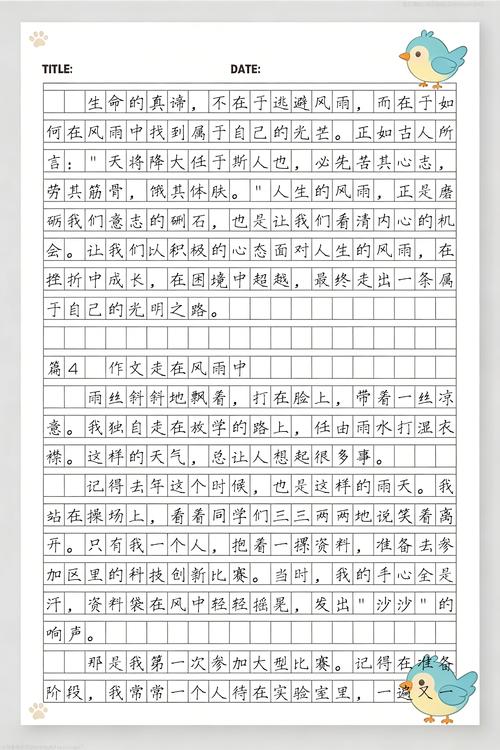 TITLE: DATE:
生命的真谛，不在于逃避风雨，而在于如
何在风雨中找到属于自己的光芒。正如古人所
言："天将降大任于斯人也，必先苦其心志，
劳其筋骨，饿其体肤。"人生的风雨，正是磨
砺我们意志的砸石，也是让我们看清内心的机
会。让我们以积极的心态面对人生的风雨，在
挫折中成长，在困境中超越，最终走出一条属
于自己的光明之路。
篇4 作文走在风雨中
雨丝斜斜地飘着，打在脸上，带着一丝凉
意。我独自走在放学的路上，任由雨水打湿衣
襟。这样的天气，总让人想起很多事。
记得去年这个时候，也是这样的雨天。我
站在操场上，看着同学们三三两两地说笑着离
开。只有我一个人，抱着一摞资料，准备去参
加区里的科技创新比赛。当时，我的手心全是
汗，资料袋在风中轻轻摇晃，发出"沙沙"的
响声。
那是我第一次参加大型比赛。记得在准备
阶段，我常常一个人待在实验室里，一遍又一